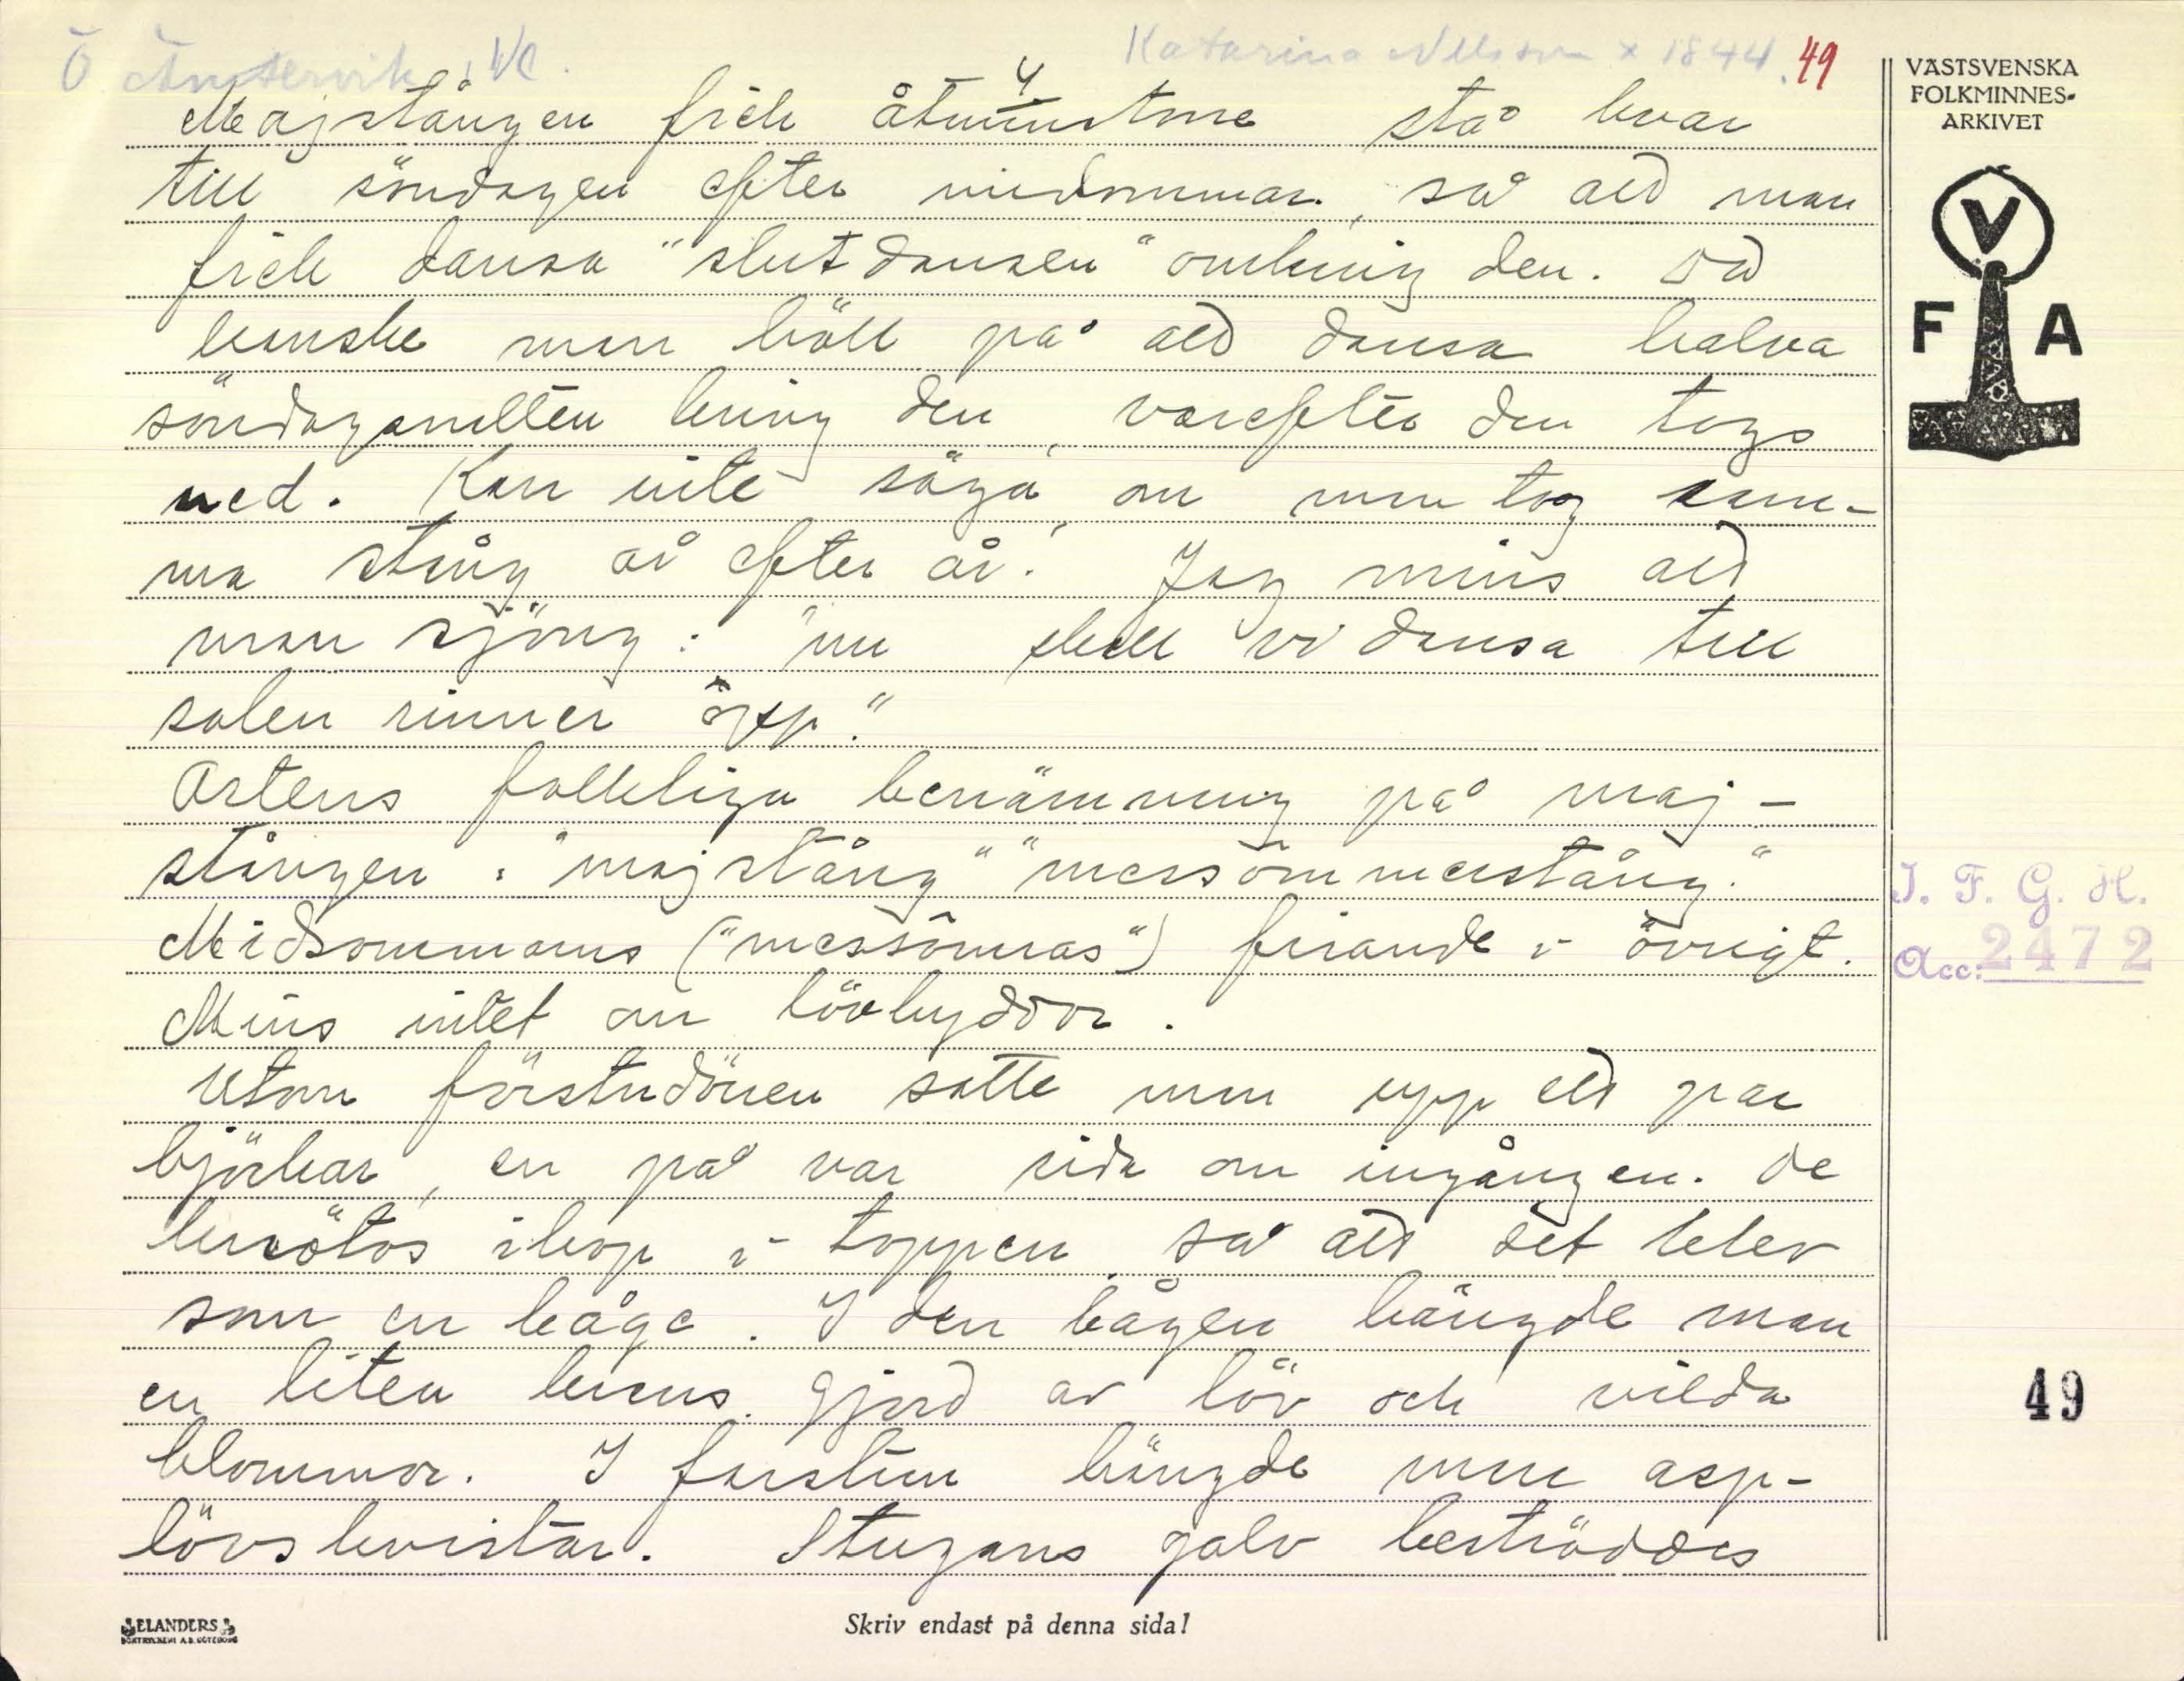 Ö Ämtervik, Vl. Katarina Nilsson x 1844. 49
4
Majstången fick åtminstone stå kvar
till söndagen efter midsommar, så att man
fick dansa "slutdansen" omkring den. Då
kanske man höll på att dansa halva
söndagsnatten kring den, varefter den togs
ned. Kan inte säga, om man tog sam-
ma stång år efter år. Jag mins att
man sjöng: "nu skall vi dansa till
solen rinner opp."
Ortens folkliga benämning på maj-
stången: "majstång" "messömmerstång."
Midsommarns ("messômras") firande i övrigt.
Mins intet om lövhyddor.
Utom förstudören satte man upp ett par
björkar, en på var sida om ingången. De
knötos ihop i toppen, så att det blev
som en båge. I den bågen hängde man
en liten krans gjord av löv och vilda
blommor. I farstun hängde man asp-
lövskvistar. Stugans golv beströddes
VÄSTSVENSKA
FOLKMINNES-
ARKIVET
V
F A
I. F. G. H.
Acc: 2472
49
ELANDERS
BOKTRYCKERI A.B. GÖTEBORG
Skriv endast på denna sida!